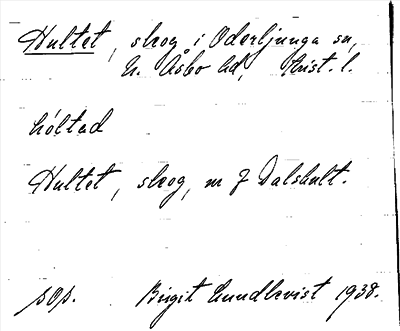 Hultet, skog i Oderljunga sn,
N. Åsbo hd, Krist. l.
hóltad
Hultet, skog, m f Dalshult.
pOp. Birgit Lundkvist 1938.